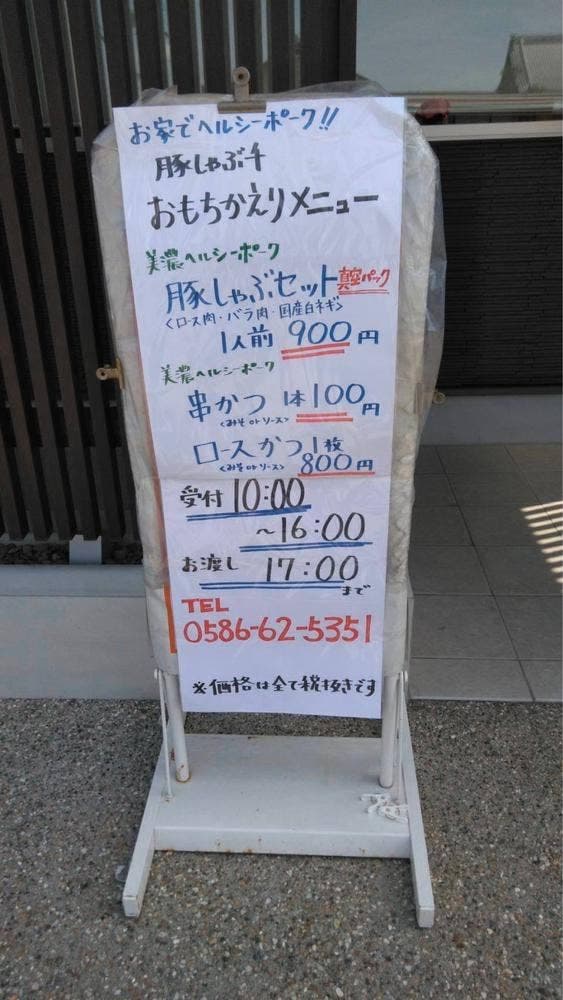 お家でヘルシーポーク!!
豚しゃぶ千
おもちかえりメニュー
美濃ヘルシーポーク
豚しゃぶセット 真空パック
<ロース肉・バラ肉・国産白ネギ>
1人前 900円
美濃ヘルシーポーク
串かつ 1本100円
<みそorソース>
ロースかつ1枚
<みそorソース> 800円
受付 10:00
~16:00
お渡し 17:00
まで
TEL
0586-62-5351
※価格は全て税抜きです